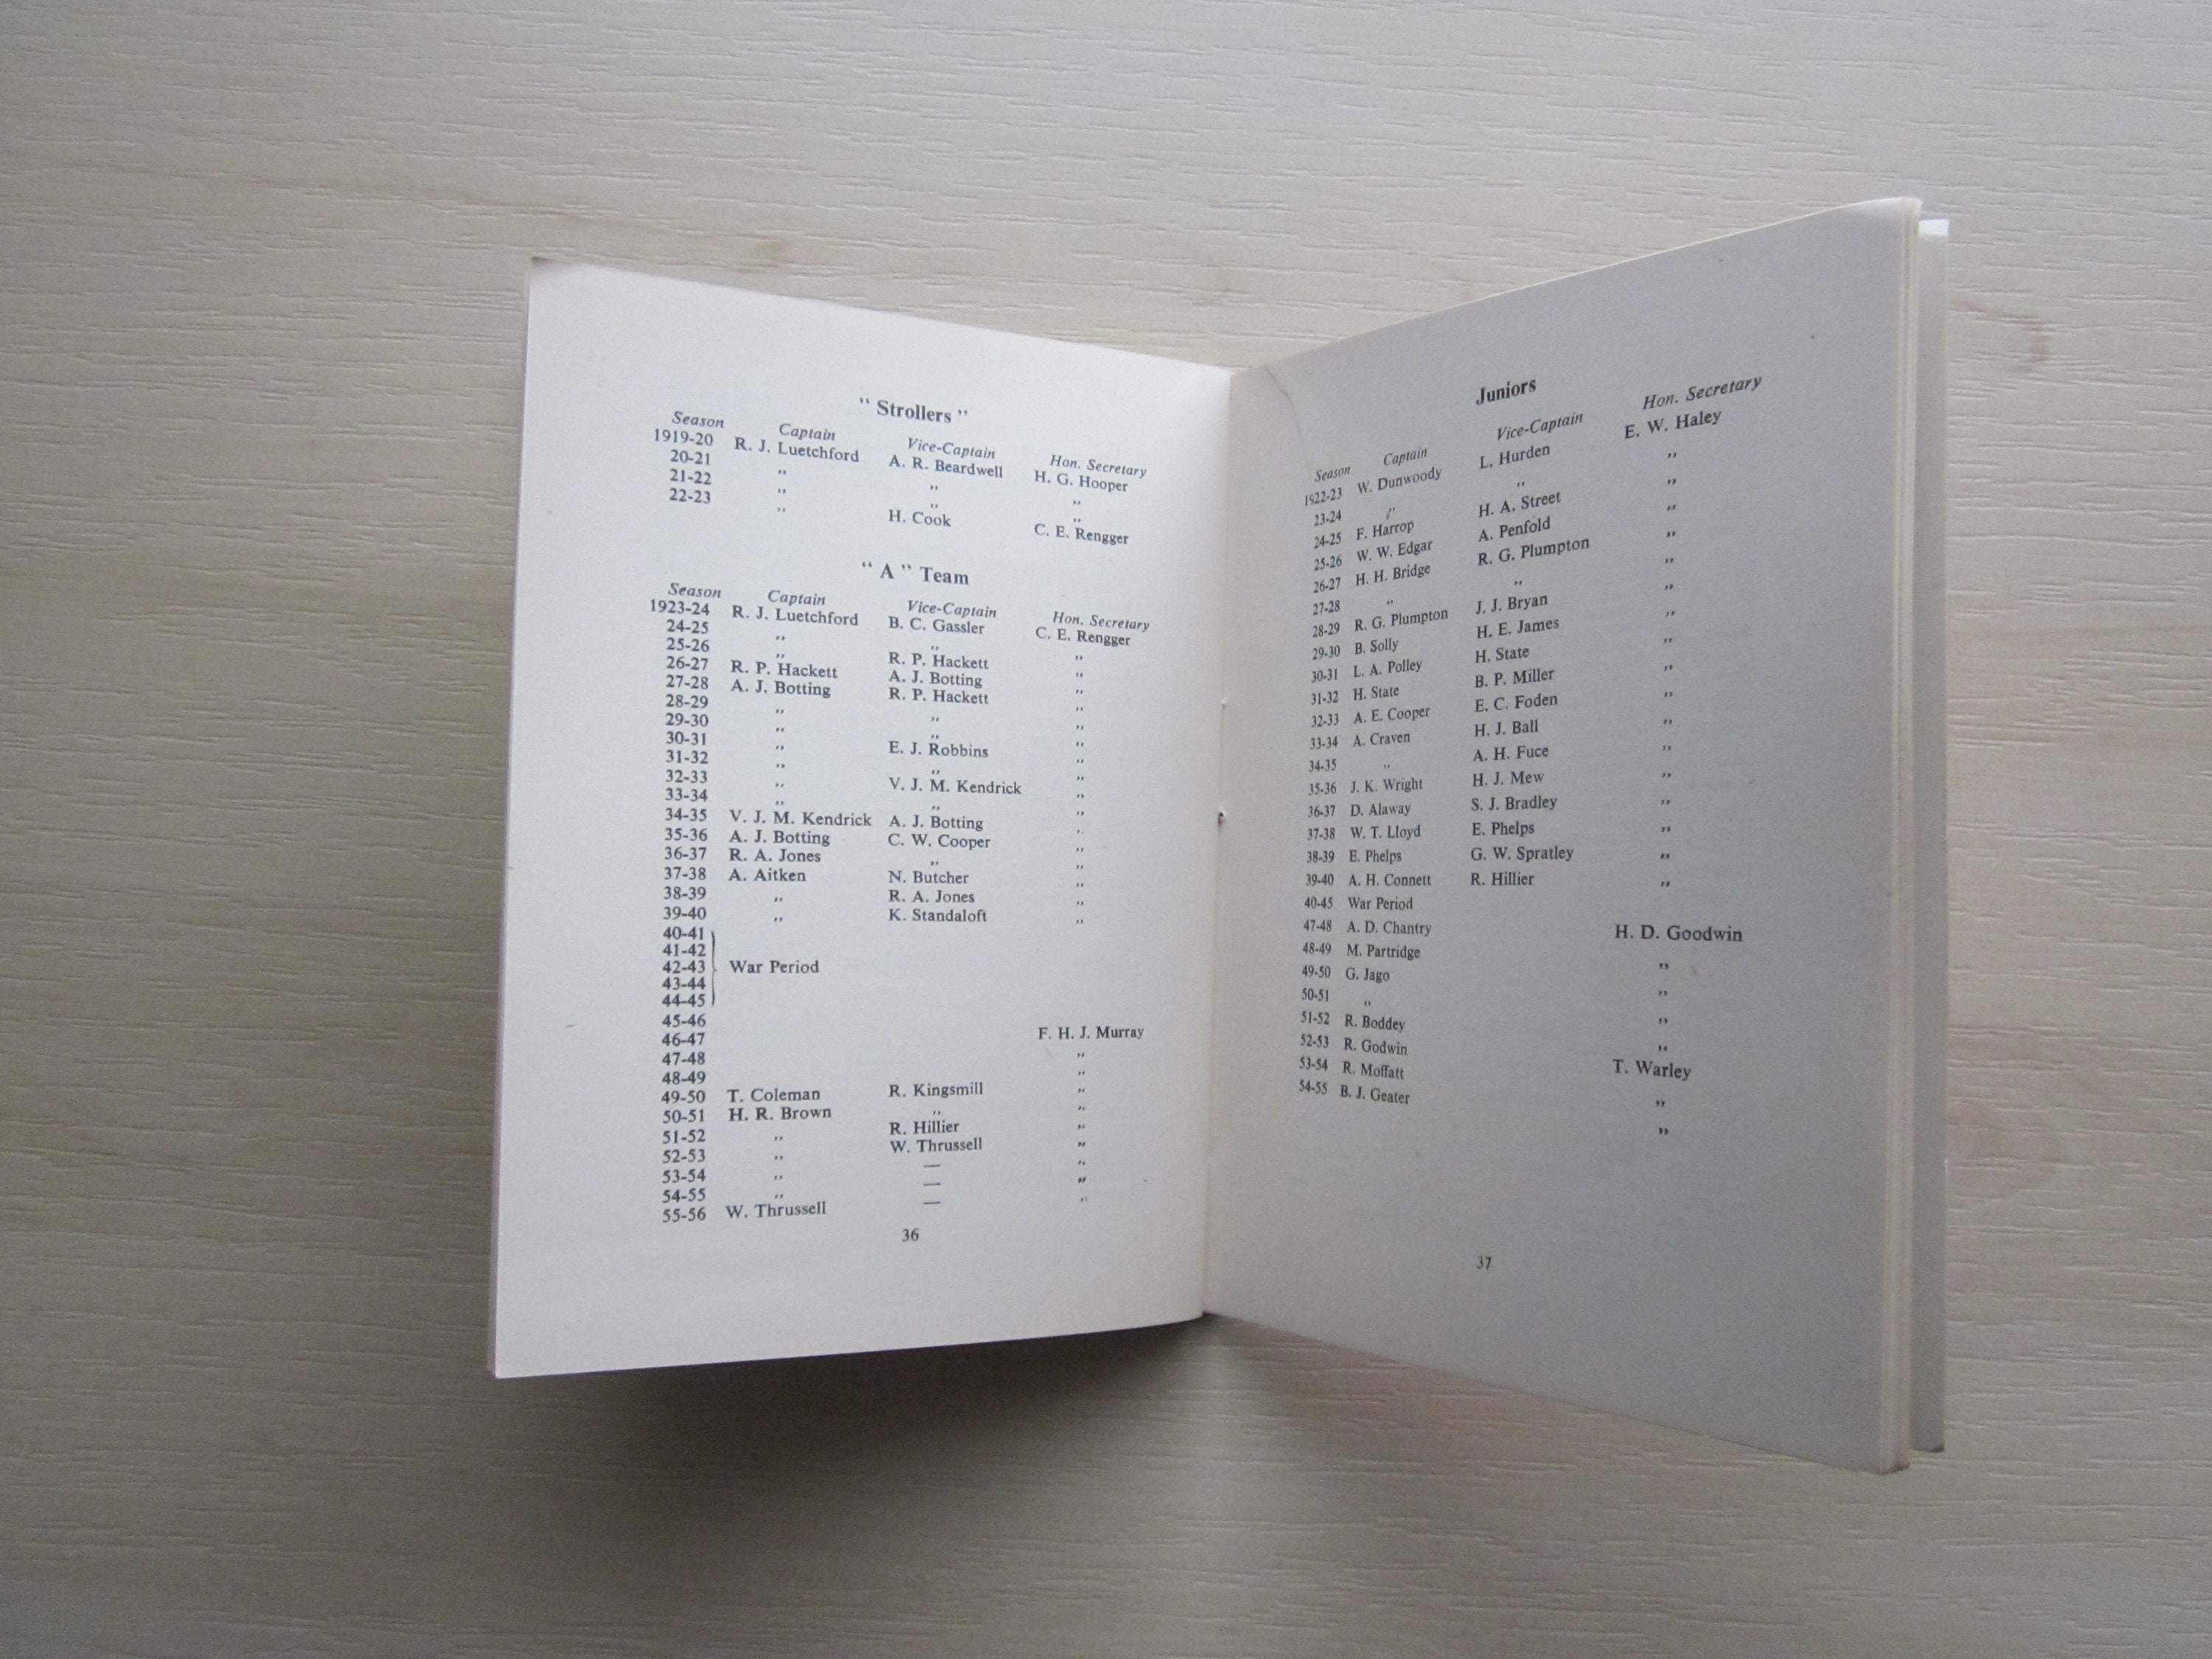 “ Strollers ”
Season Captain Vice-Captain Hon. Secretary
1919-20 R. J. Luetchford A. R. Beardwell H. G. Hooper
20-21 ,, ,, ,,
21-22 ,, ,, ,,
22-23 ,, H. Cook C. E. Rengger
“ A ” Team
Season Captain Vice-Captain Hon. Secretary
1923-24 R. J. Luetchford B. C. Gassler C. E. Rengger
24-25 ,, ,, ,,
25-26 ,, R. P. Hackett ,,
26-27 R. P. Hackett A. J. Botting ,,
27-28 A. J. Botting R. P. Hackett ,,
28-29 ,, ,, ,,
29-30 ,, ,, ,,
30-31 ,, E. J. Robbins ,,
31-32 ,, ,, ,,
32-33 ,, V. J. M. Kendrick ,,
33-34 ,, ,, ,,
34-35 V. J. M. Kendrick A. J. Botting ,,
35-36 A. J. Botting C. W. Cooper ,,
36-37 R. A. Jones ,, ,,
37-38 A. Aitken N. Butcher ,,
38-39 ,, R. A. Jones ,,
39-40 ,, K. Standaloft ,,
40-41
41-42
42-43 War Period
43-44
44-45
45-46
46-47 F. H. J. Murray
47-48 ,,
48-49 ,,
49-50 T. Coleman R. Kingsmill ,,
50-51 H. R. Brown ,, ,,
51-52 ,, R. Hillier ,,
52-53 ,, W. Thrussell ,,
53-54 ,, — ,,
54-55 ,, — ,,
55-56 W. Thrussell — ,,
36
Juniors
Season Captain Vice-Captain Hon. Secretary
1922-23 W. Dunwoody L. Hurden E. W. Haley
23-24 ,, ,, ,,
24-25 F. Harrop H. A. Street ,,
25-26 W. W. Edgar A. Penfold ,,
26-27 H. H. Bridge R. G. Plumpton ,,
27-28 ,, ,, ,,
28-29 R. G. Plumpton J. J. Bryan ,,
29-30 B. Solly H. E. James ,,
30-31 L. A. Polley H. State ,,
31-32 H. State B. P. Miller ,,
32-33 A. E. Cooper E. C. Foden ,,
33-34 A. Craven H. J. Ball ,,
34-35 ,, A. H. Fuce ,,
35-36 J. K. Wright H. J. Mew ,,
36-37 D. Alaway S. J. Bradley ,,
37-38 W. T. Lloyd E. Phelps ,,
38-39 E. Phelps G. W. Spratley ,,
39-40 A. H. Connett R. Hillier ,,
40-45 War Period
47-48 A. D. Chantry H. D. Goodwin
48-49 M. Partridge ,,
49-50 G. Jago ,,
50-51 ,, ,,
51-52 R. Boddey ,,
52-53 R. Godwin T. Warley
53-54 R. Moffatt ,,
54-55 B. J. Geater ,,
37